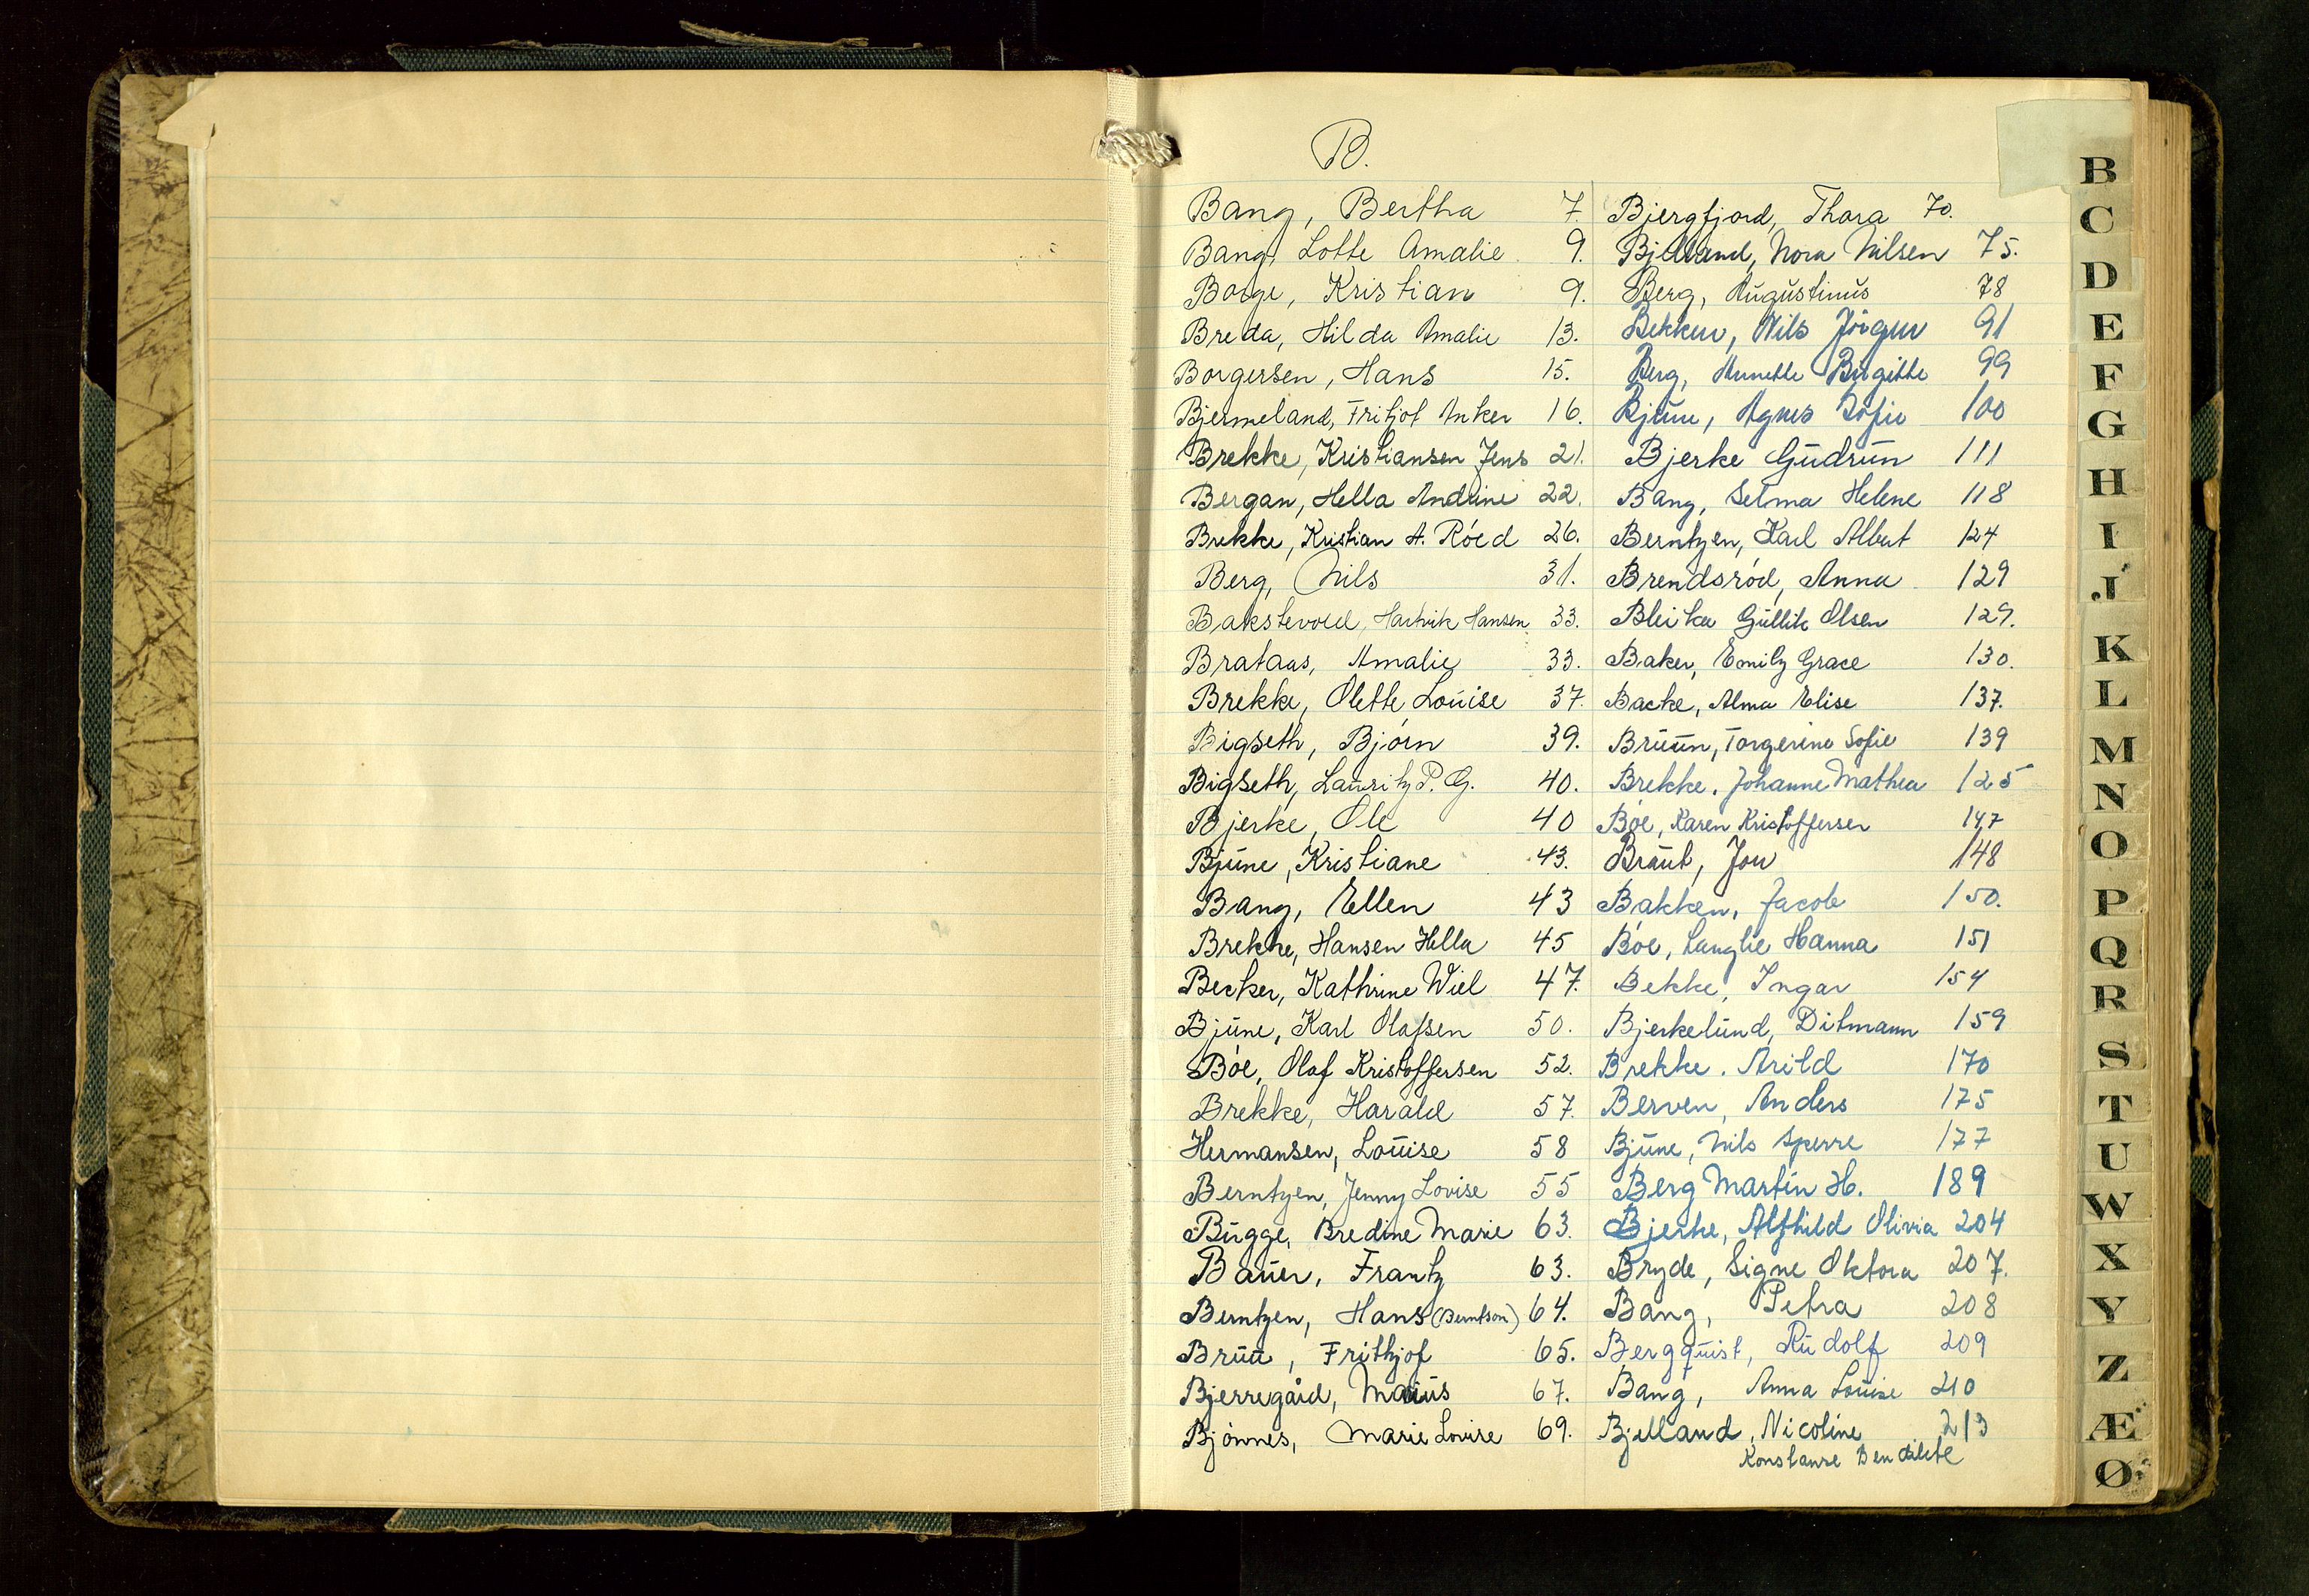 B.
Bang, Bertha 7.
Bang, Lotte Amalie 9.
Borge, Kristian 9.
Breda, Hilda Amalie 13.
Borgersen, Hans 15.
Bjermeland, Fritjof Anker 16.
Brekke, Kristiansen Jens 21.
Bergan, Hella Andrine 22.
Brekke, Kristian A. Róed 26.
Berg, Nils 31.
Bakstevold, Hartvik Hansen 33.
Brataas, Amalie 33.
Brekke, Olette Louise 37.
Bigseth, Bjórn 39.
Bigseth, Lauritz P. G. 40.
Bjerke, Ole 40
Bjune, Kristiane 43.
Bang, Ellen 43
Brekke, Hansen Hella 45
Becker, Kathrine Wiel 47.
Bjune, Karl Olafsen 50.
Bóe, Olaf Kristoffersen 52.
Brekke, Harald 57.
Hermansen, Louise 58
Berntzen, Jenny Lovise 55
Bugge, Bredine Marie 63.
Bauer, Frantz 63.
Berntzen, Hans (Berntson) 64.
Bruu, Frithjof 65.
Bjerregård, Marius 67.
Bjónnes, Marie Lovise 69.
Bjergfjord, Thora 70.
Bjelland, Nora Nilsen 75.
Berg, Augustinus 78
Bekken, Nils Jórgen 91
Berg, Annette Birgitte 99
Bjune, Agnes Sofie 100
Bjerke Gudrun 111
Bang, Selma Helene 118
Berntzen, Karl Albert 124
Brendsród, Anna 129
Bleika Gullik Olsen 129.
Baker, Emily Grace 130.
Backe, Alma Elise 137.
Bruun, Torgerine Sofie 139
Brekke, Johanne Mathea 125
Bóe, Karen Kristoffersen 147
Braut, Jon 148
Bakken, Jacob 150.
Bóe, Langlie Hanna 151
Bekke, Ingar 154
Bjerkelund, Ditmann 159
Brekke. Arild 170
Berven, Anders 175
Bjune, Nils Sperre 177
Berg Martin H. 189
Bjerke, Alfhild Olivia 204
Bryde, Signe Oktora 207.
Bang, Petra 208
Bergquist, Rudolf 209
Bang, Anna Louise 210
Bjelland, Nicoline 213
Konstanse Bendikte
B
C
D
E
F
G
H
I
J
K
L
M
N
O
P
Q
R
S
T
U
W
X
Y
Z
Æ
Ø